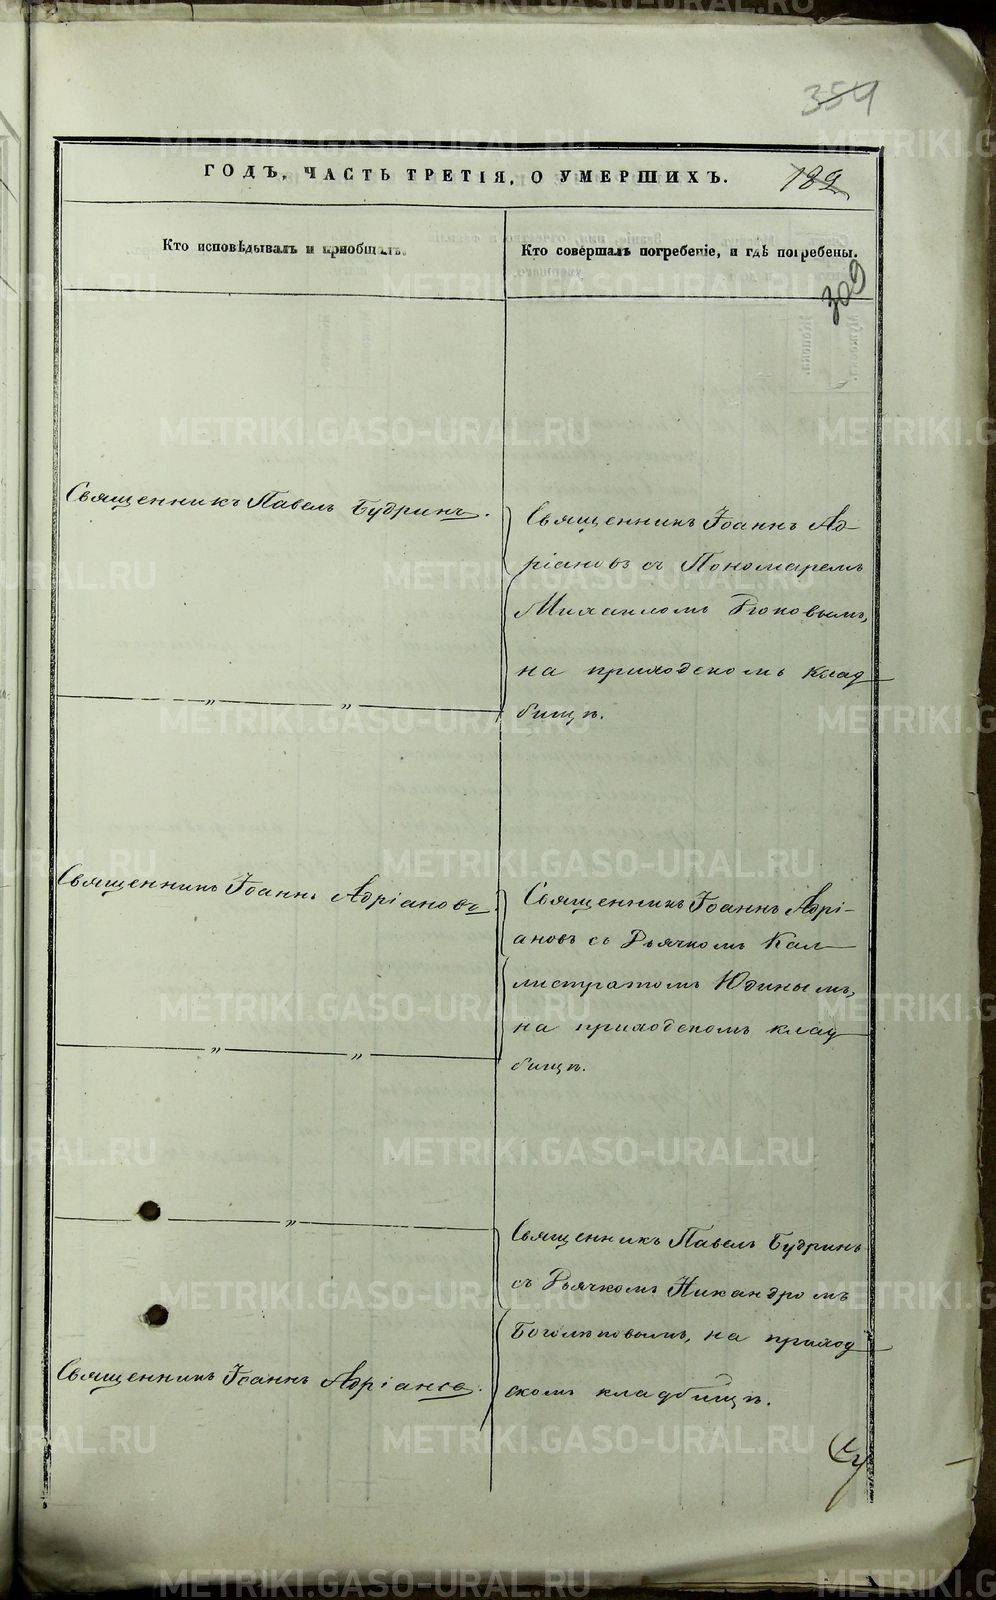 354
ГОДЪ, ЧАСТЬ ТРЕТІЯ, О УМЕРШИХЪ.
189
Кто исповѣдывалъ и пріобщалъ.
Кто совершалъ погребеніе, и гдѣ погребены.
309
Священникъ Павелъ Будринъ.
Священникъ Іоаннъ Ад-
ріановъ съ Пономаремъ
Михаиломъ
на приходскомъ клад
бищѣ.
Священникъ Іоаннъ Адріановъ.
Священникъ Іоаннъ Адрі-
ановъ съ Дьячкомъ Кал-
листратомъ Юдинымъ,
на приходскомъ клад
бищѣ.
Священникъ Павелъ Будринъ
съ Дьячкомъ Никандромъ
Боголѣповымъ, на приход
Священникъ Іоаннъ Адріановъ.
скомъ кладбищѣ.
METRIKI.GASO-URAL.RU